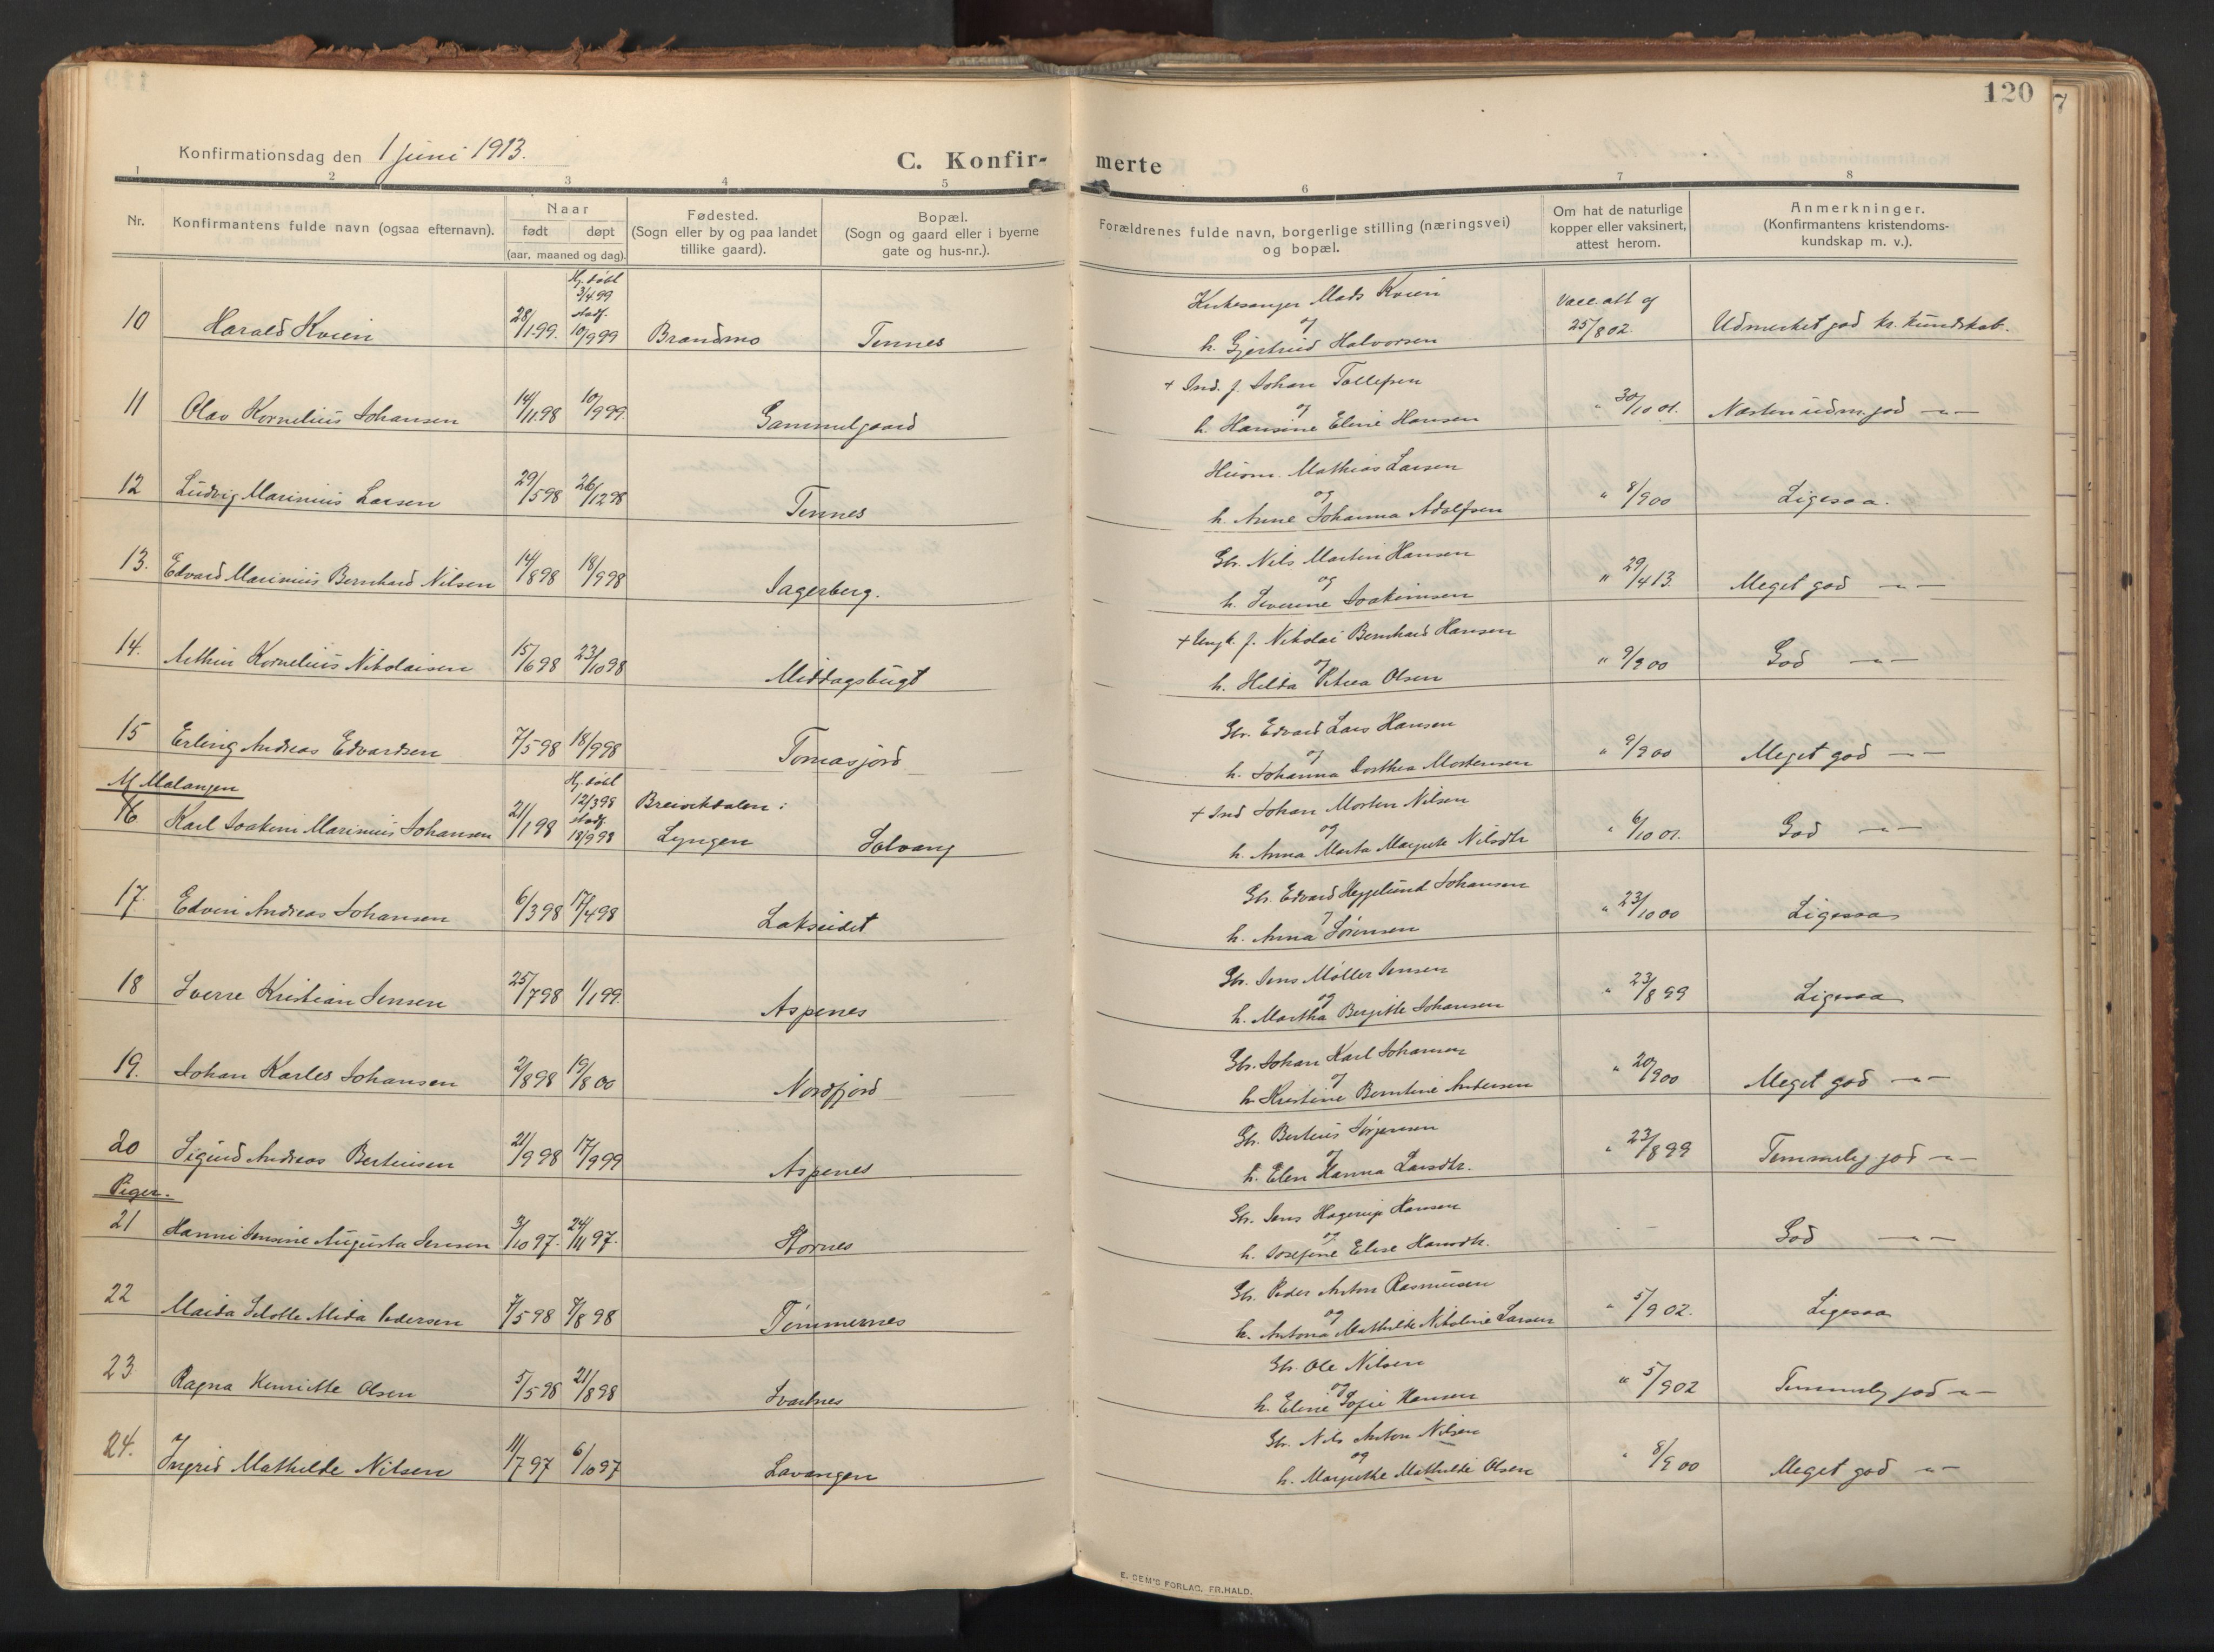 120
7
Konfirmationsdag den 1 juni 1913.
C. Konfir- merte
1 2 3 4 5 6 7 8
Nr.
Konfirmantens fulde navn (ogsaa efternavn).
Naar
født døpt
(aar, maaned og dag).
Fødested.
(Sogn eller by og paa landet
tillike gaard).
Bopæl.
(Sogn og gaard eller i byerne
gate og hus-nr.).
Forældrenes fulde navn, borgerlige stilling (næringsvei)
og bopæl.
Om hat de naturlige
kopper eller vaksinert,
attest herom.
Anmerkninger.
(Konfirmantens kristendoms-
kundskap m. v.).
Hj. døbt
3/4 99
stadf.
10 Harald Kvien 28/1 99. 10/9 99 Brandmo Tennes
Kirkesanger Mads Kvien
og
h. Gjertrud Halvorsen
Vacc. att af
25/8 02.
Udmerket god kr. kundskab.
11 Olav Kornelius Johansen 14/11 98 10/9 99. Gammelgaard
+ Ind. f. Johan Tollefsen
og
h. Hansine Eline Hansen
" 30/10 01. Næsten udm. god -"-
12 Ludvig Marinius Larsen 29/5 98 26/12 98 Tennes
Husm. Mathias Larsen
og
h. Anne Johanna Adolfsen
" 8/9 00 Ligesaa.
13. Edvard Marinius Bernhard Nilsen 14/8 98 18/9 98 Sagerberg.
Gbr. Nils Martin Hansen
og
h. Severine Joakimsen
" 29/4 13. Meget god -"-
14. Arthur Kornelius Nikolaisen 15/6 98 23/10 98 Middagsbugt
+ Ungk. f. Nikolai Bernhard Hansen
og
h. Hilda Petrea Olsen
" 9/9 00 God -"-
15 Erling Andreas Edvardsen 7/5 98 18/9 98 Tomasjord
Gbr. Edvard Lars Hansen
og
h. Johanna Dorthea Mortensen
" 9/9 00 Meget god -"-
M Malangen
Hj. døbt
12/3 98
stadf.
16 Karl Joakim Marinius Johansen 21/1 98 18/9 98 Breivikdalen i
Lyngen Solvang
+ Ind Johan Morten Nilsen
og
h. Anna Marta Margrete Nilsdtr
" 6/10 01. God -"-
17. Edvin Andreas Johansen 6/3 98 17/4 98 Lakseidet
Gbr. Edvard Heggelund Johansen
og
h. Anna Sørensen
" 23/10 00 Ligesaa
18 Sverre Kristian Jensen 25/7 98 1/1 99. Aspenes
Gbr. Jens Møller Jensen
og
h. Martha Bergitte Johansen
" 23/8 99 Ligesaa
19. Johan Karles Johansen 2/8 98 19/8 00 Nordfjord
Gbr. Johan Karl Johansen
og
h. Kristine Berntine Andersen
" 20/9 00 Meget god -"-
20 Sigurd Andreas Berteusen 21/9 98 17/9 99 Aspenes
Gbr. Berteus Jørgensen
og
h. Elen Hanna Larsdtr.
" 23/8 99 Temmelig god -"-
Piger.
21 Hanni Jensine Augusta Jensen 3/10 97. 24/11 97. Stornes
Gbr. Jens Hagerup Hansen
og
h. Josefine Elise Hansdtr.
- God -"-
22 Maida Selotte Mida Pedersen 7/5 98 7/8 98 Tømmernes
Gbr. Peder Anton Rasmussen
og
h. Antona Mathilde Nikoline Larsen
" 5/9 02. Ligesaa
23 Ragna Henriette Olsen 5/5 98 21/8 98 Svartnes
Gbr. Ole Nilsen
og
h. Eline Sofie Hansen
" 5/9 02 Temmelig god -"-
24. Ingrid Mathilde Nilsen 11/7 97 6/10 97 Lavangen
Gbr. Nils Anton Nilsen
og
h. Margrethe Mathilde Olsen
" 8/9 00 Meget god -"-
E. SEM'S FORLAG. FR.HALD.